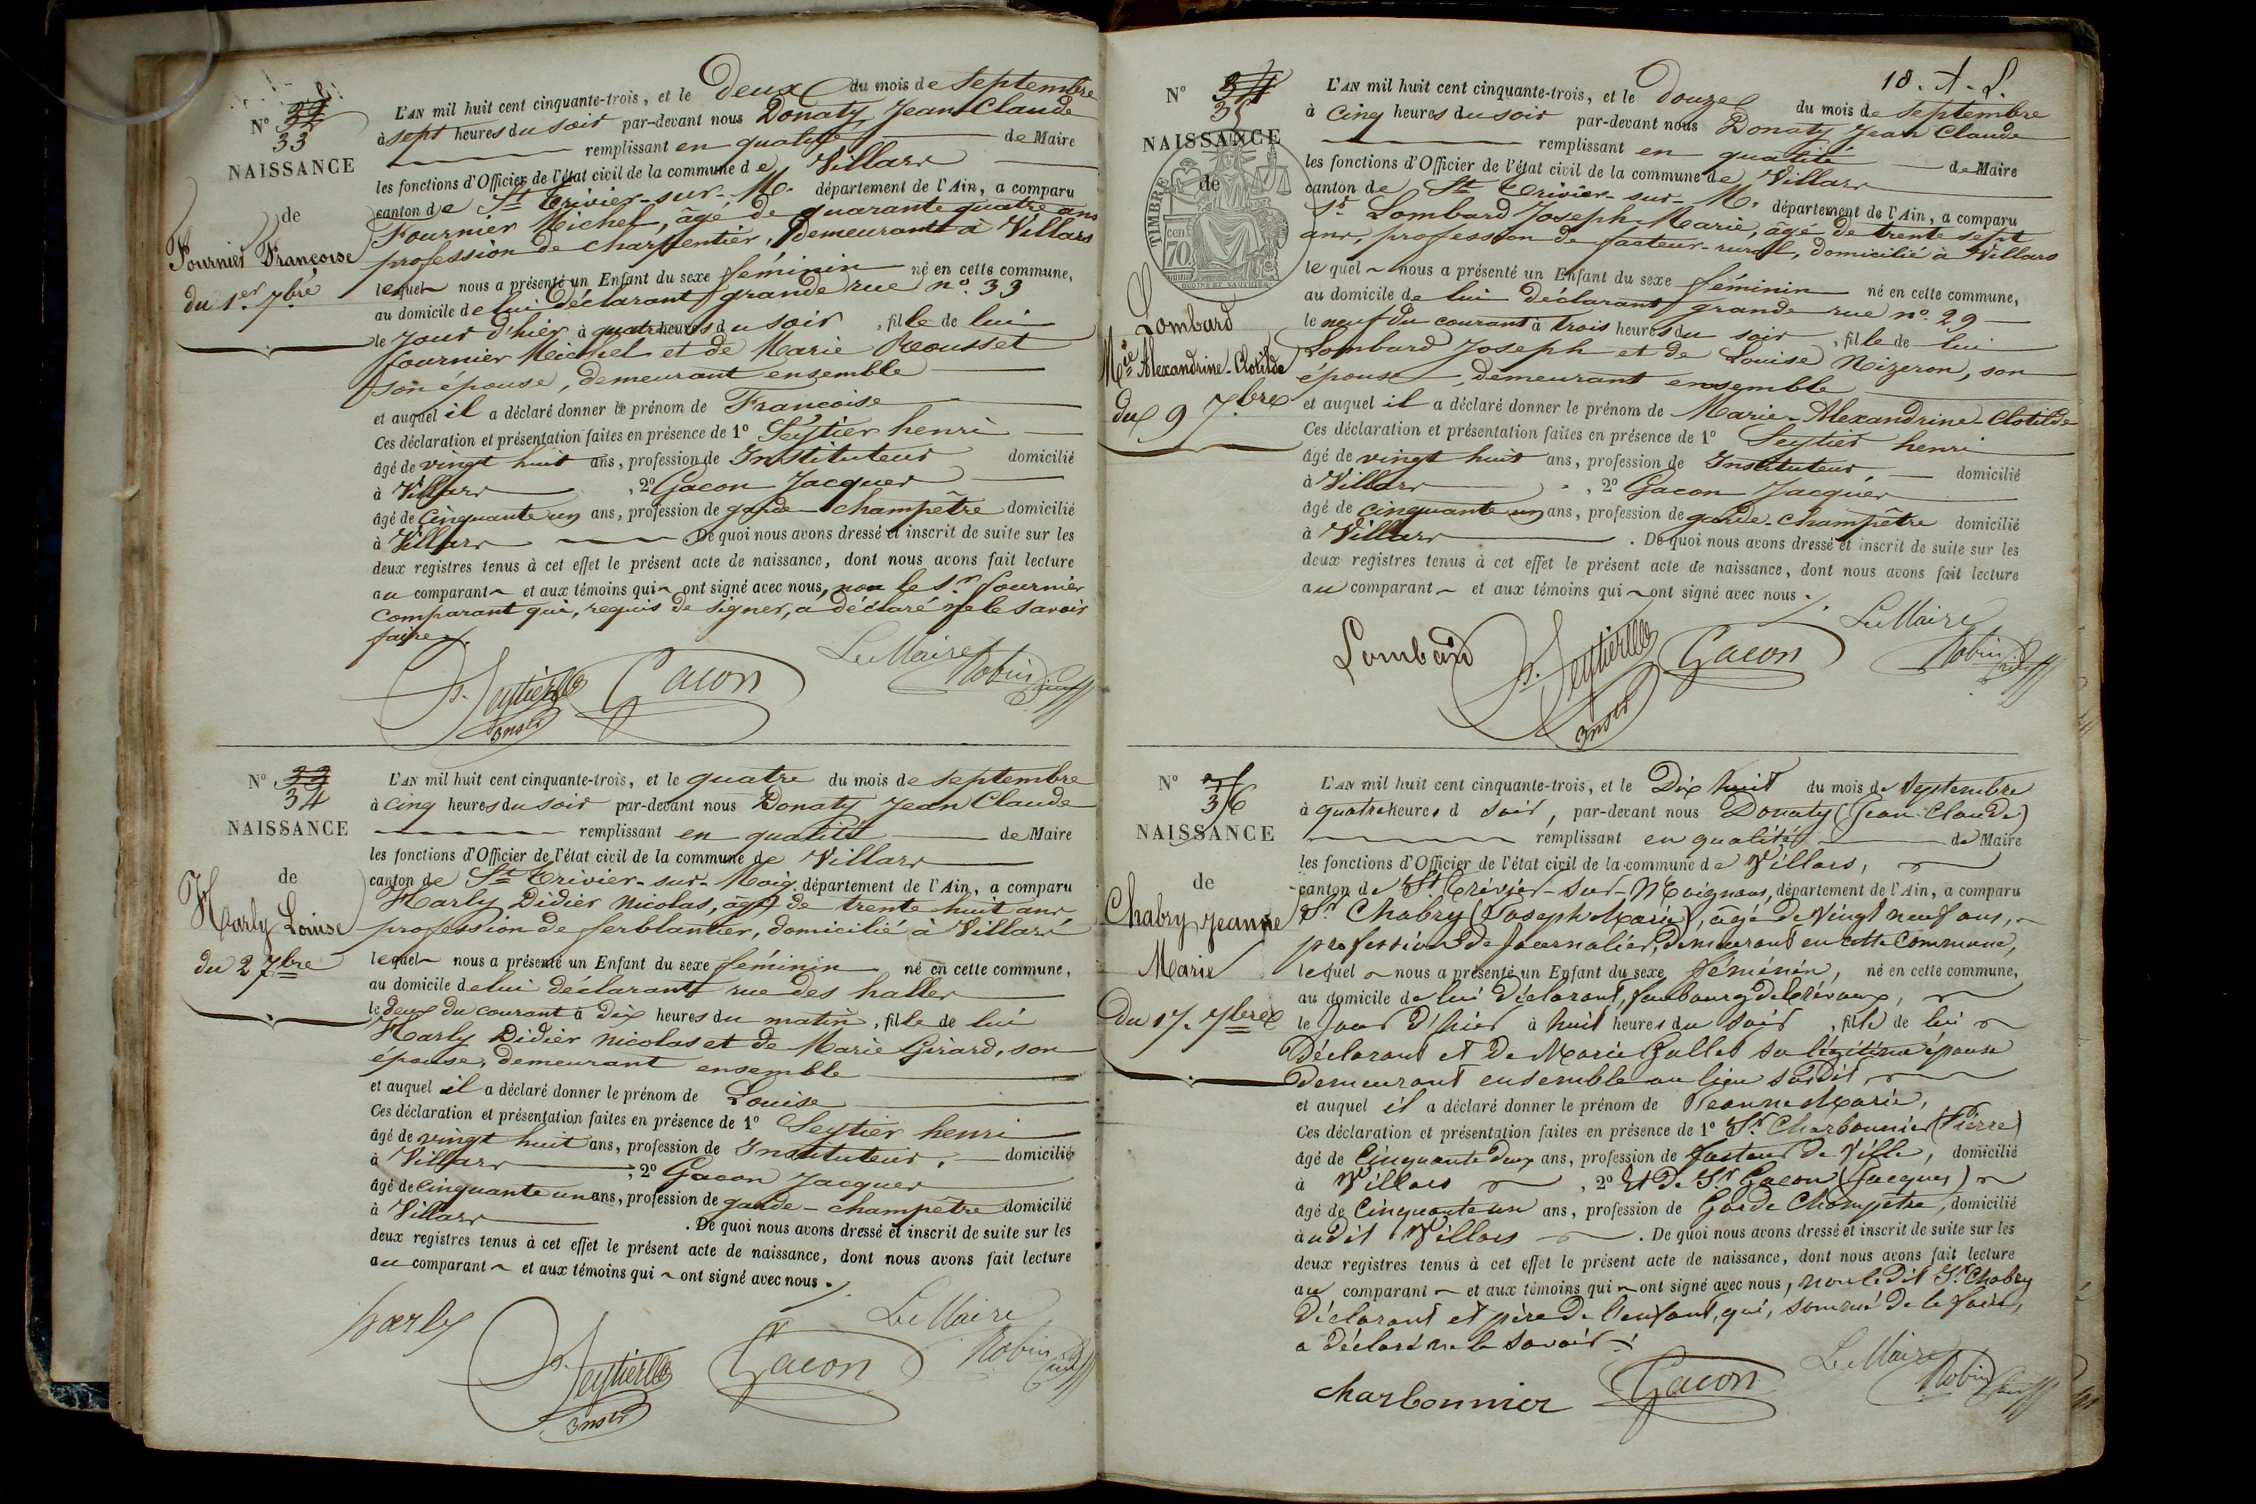 N° 32
33
NAISSANCE
de
Fournier Françoise
du 1er 7bre
L'AN mil huit cent cinquante-trois, et le Deux du mois de Septembre
à sept heures du soir par-devant nous Donaty Jean Claude
remplissant en qualité de Maire
les fonctions d'Officier de l'état civil de la commune de Villars
canton de St Trivier-sur-M. département de l'Ain, a comparu
Fournier Michel, âgé de quarante quatre ans
profession de charpentier, demeurant à Villars
lequel nous a présenté un Enfant du sexe féminin né en cette commune,
au domicile de lui Déclarant grande rue n° 33
le Jour d'hier à quatre heures du soir, fille de lui
fournier Michel et de Marie Rousset
son épouse, demeurant ensemble
et auquel il a déclaré donner le prénom de Françoise
Ces déclaration et présentation faites en présence de 1° Seytier henri
âgé de vingt huit ans, profession de Instituteur domicilié
à Villars, 2° Gacon Jacques
âgé de Cinquante un ans, profession de garde champêtre domicilié
à Villars De quoi nous avons dressé et inscrit de suite sur les
deux registres tenus à cet effet le présent acte de naissance, dont nous avons fait lecture
au comparant et aux témoins qui ont signé avec nous, non le Sr fournier
comparant qui, requis de signer, a déclaré ne le savoir
faire.
Le Maire
H. Seytier Gacon Robin
Instr
N° 33
34
NAISSANCE
de
Harly Louise
du 2 7bre
L'AN mil huit cent cinquante-trois, et le quatre du mois de septembre
à cinq heures du soir par-devant nous Donaty Jean Claude
remplissant en qualité de Maire
les fonctions d'Officier de l'état civil de la commune de Villars
canton de St Trivier-sur-Moig. département de l'Ain, a comparu
Harly Didier Nicolas, âgé de trente huit ans,
profession de ferblantier, domicilié à Villars
lequel nous a présenté un Enfant du sexe féminin né en cette commune,
au domicile de lui declarant rue des halles
le deux du courant à dix heures du matin, fille de lui
Harly Didier Nicolas et de Marie Girard, son
épouse, demeurant ensemble
et auquel il a déclaré donner le prénom de Louise
Ces déclaration et présentation faites en présence de 1° Seytier henri
âgé de vingt huit ans, profession de Instituteur, domicilié
à Villars, 2° Gacon Jacques
âgé de cinquante un ans, profession de garde-champêtre domicilié
à Villars. De quoi nous avons dressé et inscrit de suite sur les
deux registres tenus à cet effet le présent acte de naissance, dont nous avons fait lecture
au comparant et aux témoins qui ont signé avec nous.
Le Maire
harly H. Seytier Gacon Robin
Instr
18. A. L.
N° 34
35
NAISSANCE
de
TIMBRE
70
cent
Lombard
Mie Alexandrine-Clotilde
du 9 7bre
L'AN mil huit cent cinquante-trois, et le douze du mois de septembre
à cinq heures du soir par-devant nous Donaty Jean Claude
remplissant en qualité de Maire
les fonctions d'Officier de l'état civil de la commune de Villars
canton de St Trivier-sur-M. département de l'Ain, a comparu
Sr Lombard Joseph Marie, âgé de trente sept
ans, profession de facteur-rural, domicilié à Villars
lequel nous a présenté un Enfant du sexe féminin né en cette commune,
au domicile de lui Déclarant grande rue n° 29
le neuf du courant à trois heures du soir, fille de lui
Lombard Joseph et de Louise Nizeron, son
épouse, demeurant ensemble
et auquel il a déclaré donner le prénom de Marie-Alexandrine-Clotilde
Ces déclaration et présentation faites en présence de 1° Seytier henri
âgé de vingt huit ans, profession de Instituteur domicilié
à Villars, 2° Gacon Jacques
âgé de cinquante un ans, profession de garde-champêtre domicilié
à Villars. De quoi nous avons dressé et inscrit de suite sur les
deux registres tenus à cet effet le présent acte de naissance, dont nous avons fait lecture
au comparant et aux témoins qui ont signé avec nous.
Le Maire
Lombard H. Seytier Gacon Robin
Instr
N°
36
NAISSANCE
de
Chabry Jeanne
Marie
Du 17. 7bre
L'AN mil huit cent cinquante-trois, et le Dix huit du mois de Septembre
à quatre heures d soir, par-devant nous Donaty (Jean-Claude)
remplissant en qualité de Maire
les fonctions d'Officier de l'état civil de la commune de Villars,
canton de St Trivier-sur-Moignans, département de l'Ain, a comparu
Sr Chabry (Joseph Marie), âgé de vingt neuf ans,
profession de Journalier, demeurant en cette Commune,
lequel nous a présenté un Enfant du sexe féminin, né en cette commune,
au domicile de lui Déclarant, faubourg de Trévoux,
le Jour d'hier à huit heures du soir, fille de lui
Déclarant et de Marie Gallet sa légitime épouse
Demeurant ensemble au lieu susdit,
et auquel il a déclaré donner le prénom de Jeanne Marie,
Ces déclaration et présentation faites en présence de 1° Sr Charbonnier (Pierre)
âgé de Cinquante deux ans, profession de facteur de Ville, domicilié
à Villars, 2° Et De Sr Gacon (Jacques)
âgé de Cinquante un ans, profession de Garde Champêtre, domicilié
audit Villars. De quoi nous avons dressé et inscrit de suite sur les
deux registres tenus à cet effet le présent acte de naissance, dont nous avons fait lecture
au comparant et aux témoins qui ont signé avec nous, non le Dit Sr Chabry
Déclarant et père de l'enfant, qui, sommé de le faire,
a Déclaré ne le savoir.
Le Maire
Charbonnier Gacon Robin